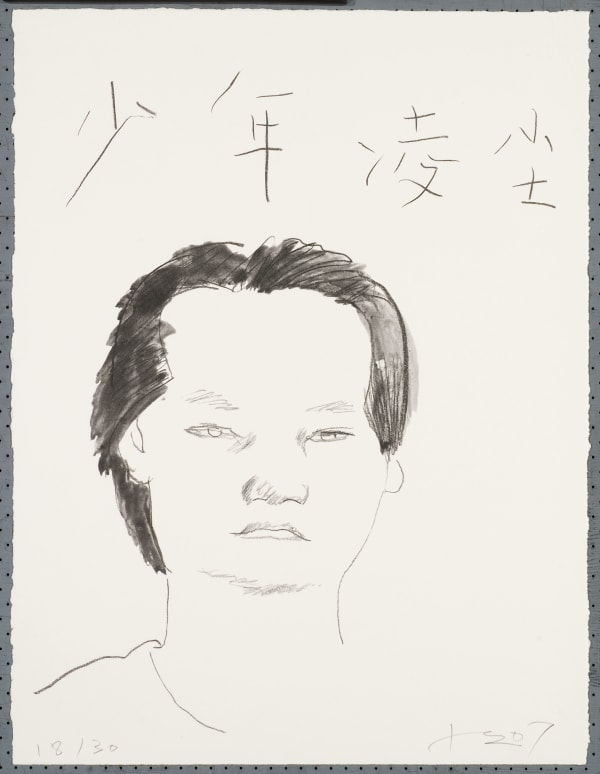 少年凌尘
18/30